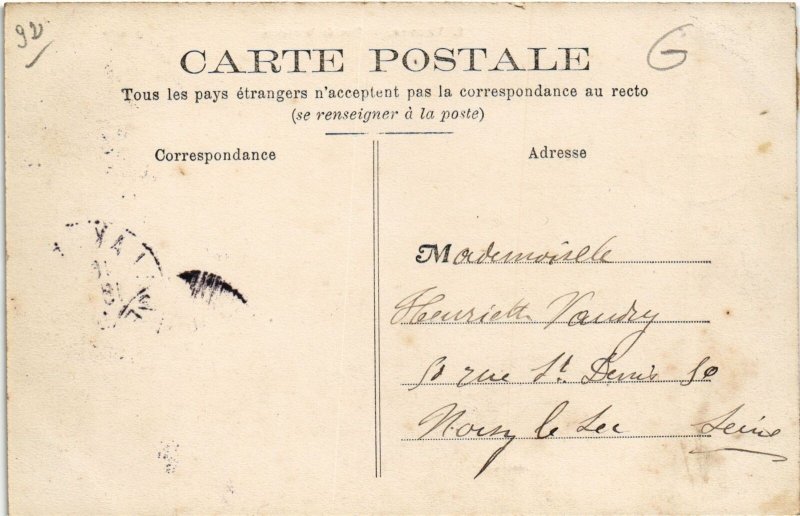 92
G
CARTE POSTALE
Tous les pays étrangers n'acceptent pas la correspondance au recto
(se renseigner à la poste)
Correspondance
Adresse
Mademoiselle
Henriette Vaudry
50 rue St Denis 50
Noisy le Sec Seine